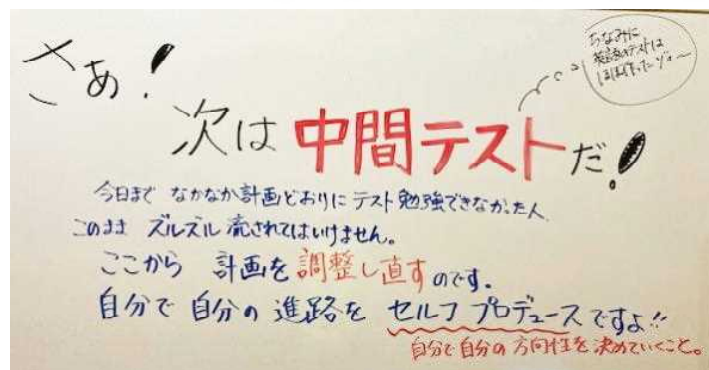 さぁ！
次は中間テストだ！
ちなみに
英語のテストは
ほぼ作ったゾ〜
今日まで なかなか計画どおりに テスト勉強できなかった人、
このまま ズルズル 流されてはいけません。
ここから 計画を 調整し直すのです。
自分で 自分の 進路を セルフ プロデュースですよ!!
自分で自分の方向性を決めていくこと。